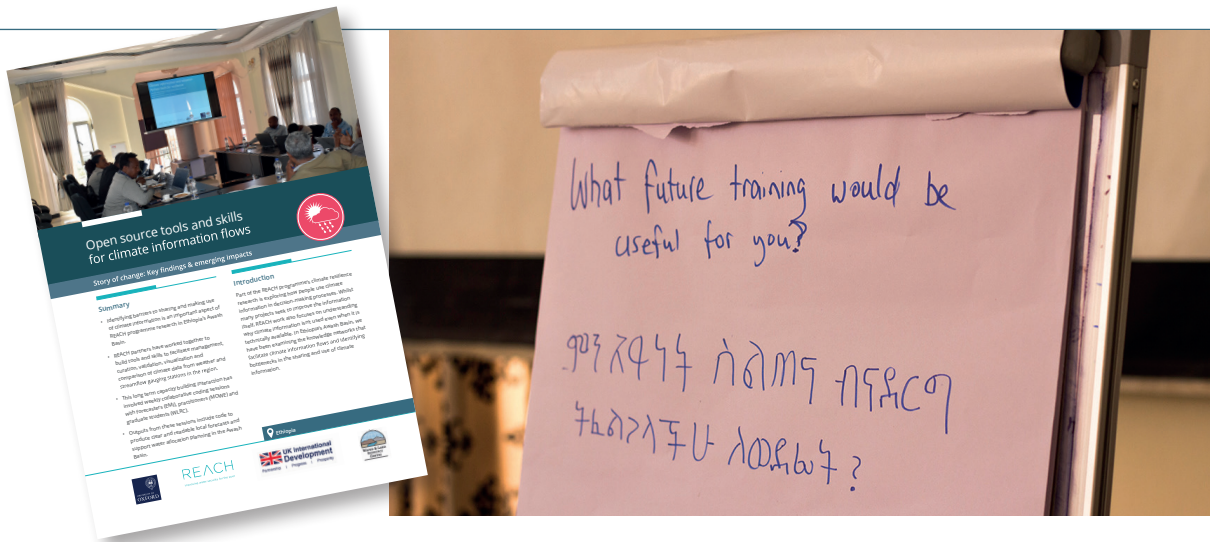 Open source tools and skills
for climate information flows
Story of change: Key findings & emerging impacts
Summary
• Identifying barriers to sharing and making use
of climate information is an important aspect of
REACH programme research in Ethiopia's Awash
Basin.
• REACH partners have worked together to
build tools and skills to facilitate management,
curation, validation, visualization and
comparison of climate data from weather and
streamflow gauging stations in the region.
• This long term capacity building interaction has
involved weekly collaborative coding sessions
with forecasters (EMI), practitioners (MOWE) and
graduate students (WLRC).
• Outputs from these sessions include code to
produce clear and readable local forecasts and
support water allocation planning in the Awash
Basin.
Introduction
Part of the REACH programme, climate resilience
research is exploring how people use climate
information in decision making processes. Whilst
many projects seek to improve the information
itself, REACH work also focuses on understanding
why climate information isn't used even when it is
technically available. In Ethiopia's Awash Basin, we
have been examining the knowledge networks that
facilitate climate information flows and identifying
bottlenecks in the sharing and use of climate
information.
Ethiopia
UNIVERSITY OF
OXFORD
REACH
UK International
Development
Partnership | Progress | Prosperity
What future training would be
useful for you?
ምን አይነት ስልጠና ብናደርግ
ትፈልጋላችሁ ለወደፊት ?